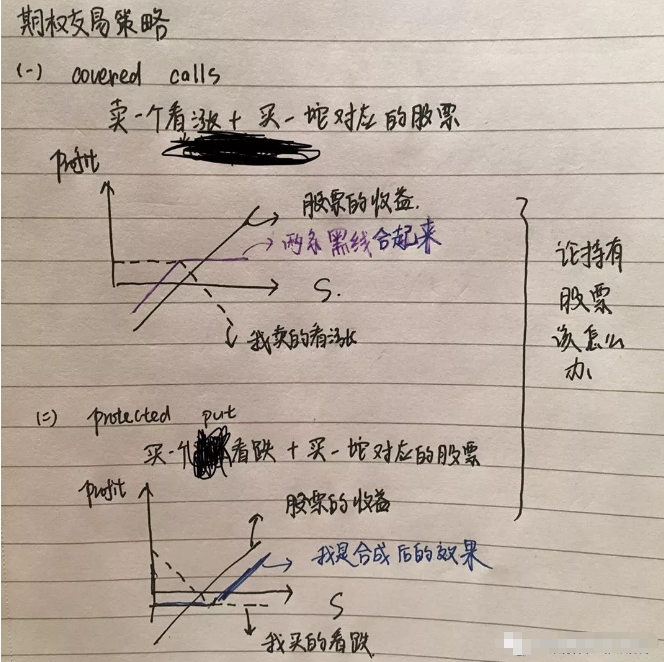 期权交易策略
(一) covered calls
卖一个看涨 + 买一坨对应的股票
profit
股票的收益.
两条黑线合起来
S.
我卖的看涨
论持有
股票
该怎么
办
(二) protected put
买一个看跌 + 买一坨对应的股票
profit
股票的收益
我是合成后的效果
S
我买的看跌